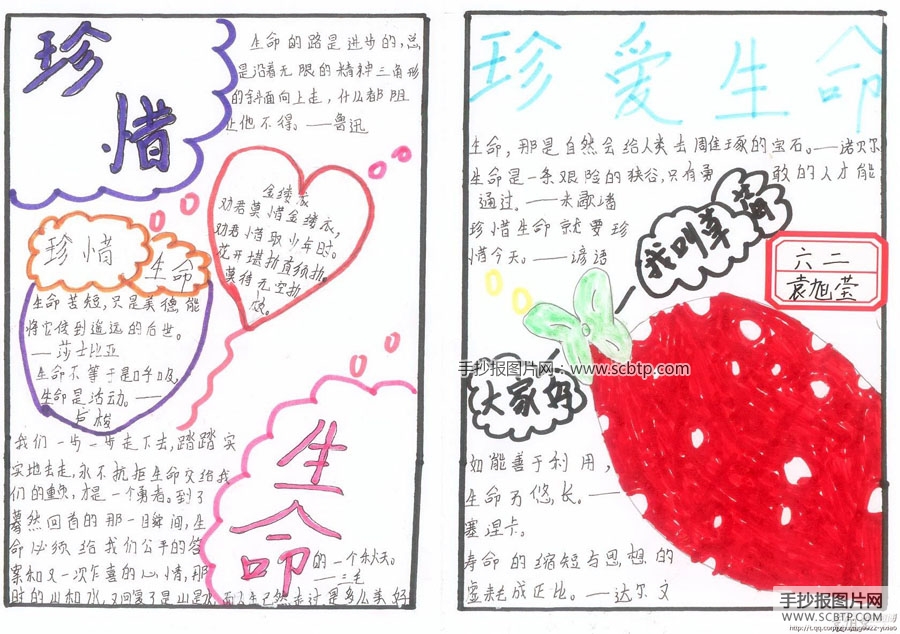 珍
惜
生命的路是进步的,总
是沿着无限的精神三角形
的斜面向上走,什么都阻
止他不得。——鲁迅
金缕衣
劝君莫惜金缕衣,
劝君惜取少年时。
花开堪折直须折,
莫待无空折
枝。
珍惜
生命
生命苦短,只是美德能
将它传到遥远的后世。
——莎士比亚
生命不等于是呼吸,
生命是活动。——
卢梭
我们一步一步走下去,踏踏实
实地去走,永不抗拒生命交给我
们的重负,才是一个勇者。到了
蓦然回首的那一瞬间,生
命必须给我们公平的答
案和又一次乍喜的心情,那
时的山和水,又回复了是山是水,而人生已然走过,是多么美好
的一个秋天。
——三毛
生
命
珍爱生命
生命,那是自然会给人类去周隹琢的宝石。——诺贝尔
生命是一条艰险的狭谷,只有勇敢的人才能
通过。——米歇潘
珍惜生命就要珍
惜今天。——谚语
我叫草莓
六二
袁旭莹
大家好
手抄报图片网:www.scbtp.com
如能善于利用,
生命乃悠长。——
塞涅卡。
寿命的缩短与思想的
虚耗成正比。——达尔文
手抄报图片网
WWW.SCBTP.COM